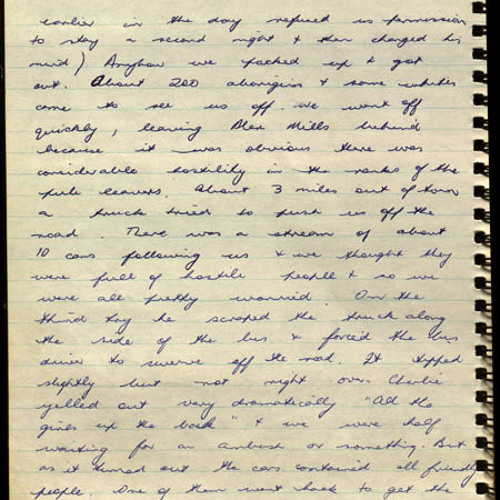 earlier in the day refused us permission
to stay a second night & then changed his
mind) Anyhow we packed up & got
out. About 200 aborigines & some whites
came to see us off. We went off
quickly, leaving Alan Mills behind
because it was obvious there was
considerable hostility in the ranks of the
pub leavers. About 3 miles out of town
a truck tried to push us off the
road. There was a stream of about
10 cars following us & we thought they
were full of hostile people & so we
were all pretty worried. On the
third try he scraped the truck along
the side of the bus & forced the bus
driver to swerve off the road. It tipped
slightly but not right over. Charlie
yelled out very dramatically "All the
girls up the back" & we were half
waiting for an ambush or something. But
as it turned out the cars contained all friendly
people. One of them went back to get the